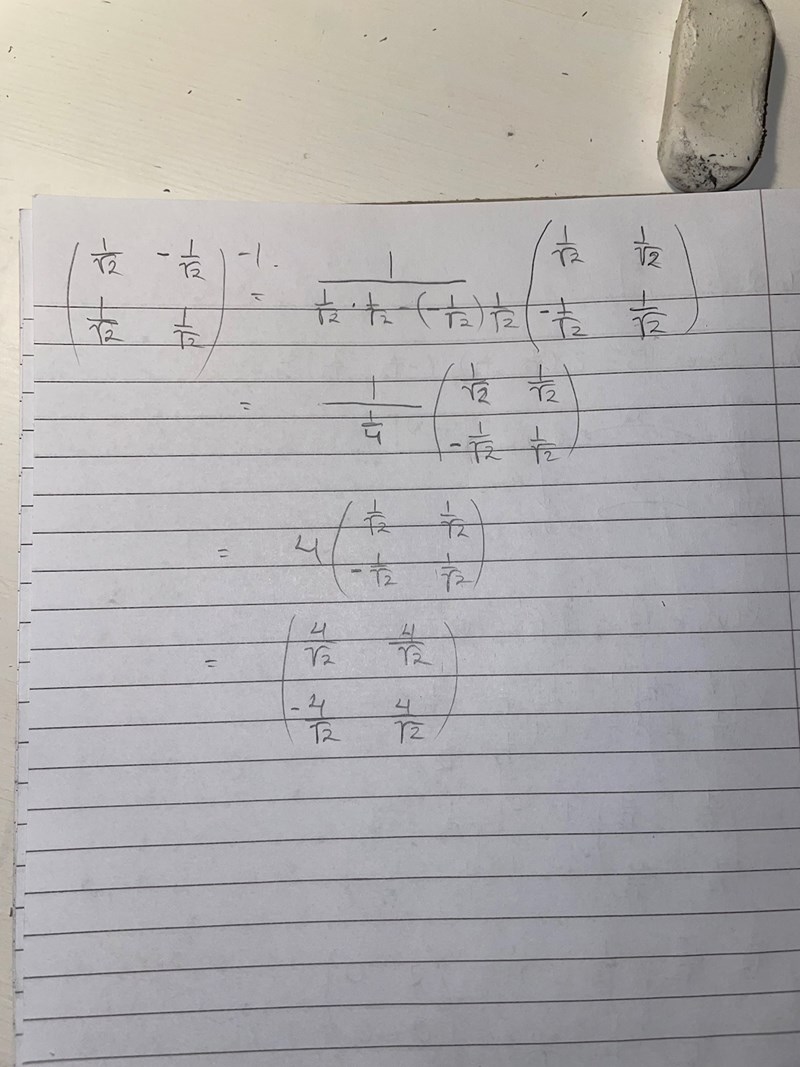 \begin{pmatrix} \frac{1}{\sqrt{2}} & -\frac{1}{\sqrt{2}} \\ \frac{1}{\sqrt{2}} & \frac{1}{\sqrt{2}} \end{pmatrix}^{-1} = \frac{1}{\frac{1}{\sqrt{2}} \cdot \frac{1}{\sqrt{2}} - (-\frac{1}{\sqrt{2}}) \frac{1}{\sqrt{2}}} \begin{pmatrix} \frac{1}{\sqrt{2}} & \frac{1}{\sqrt{2}} \\ -\frac{1}{\sqrt{2}} & \frac{1}{\sqrt{2}} \end{pmatrix}
= \frac{1}{\frac{1}{4}} \begin{pmatrix} \frac{1}{\sqrt{2}} & \frac{1}{\sqrt{2}} \\ -\frac{1}{\sqrt{2}} & \frac{1}{\sqrt{2}} \end{pmatrix}
= 4 \begin{pmatrix} \frac{1}{\sqrt{2}} & \frac{1}{\sqrt{2}} \\ -\frac{1}{\sqrt{2}} & \frac{1}{\sqrt{2}} \end{pmatrix}
= \begin{pmatrix} \frac{4}{\sqrt{2}} & \frac{4}{\sqrt{2}} \\ -\frac{4}{\sqrt{2}} & \frac{4}{\sqrt{2}} \end{pmatrix}